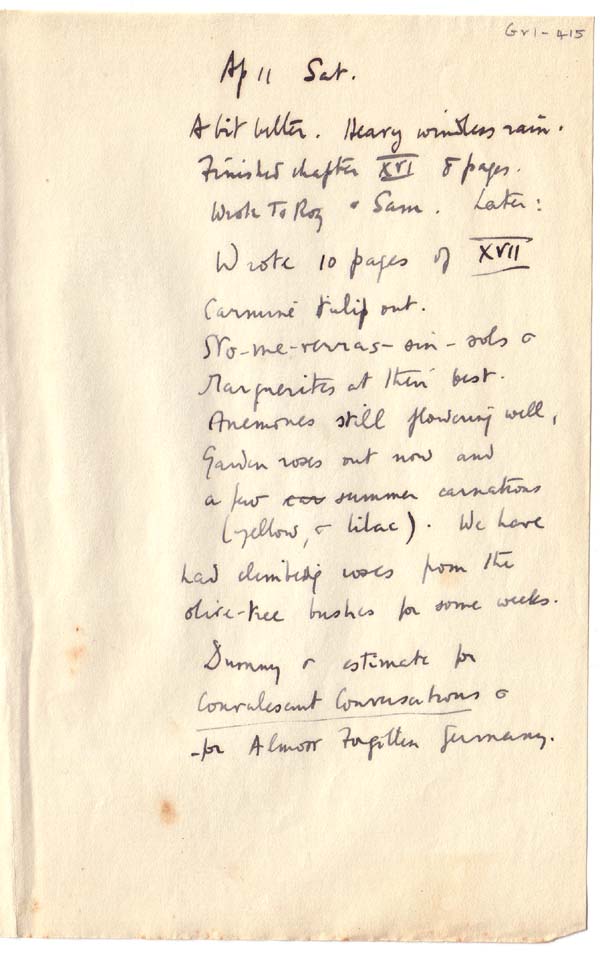 Gr1-415
Ap 11 Sat.
A bit better. Heavy windless rain.
Finished chapter XVI 8 pages.
Wrote To Roz & Sam. Later:
Wrote 10 pages of XVII
Carmine tulip out.
No-me-verras-sin-sols &
Marguerites at their best.
Anemones still flowering well,
Garden roses out now and
a few car summer carnations
(yellow, & lilac). We have
had climbing roses from the
olive-tree bushes for some weeks.
Dummy & estimate for
Convalescent Conversations &
for Almost Forgotten Germany.